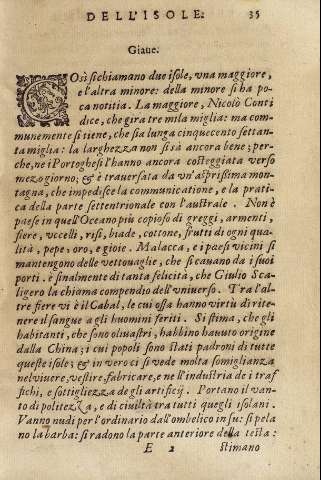 DELL'ISOLE. 35
Giaue.
COsì si chiamano due isole, vna maggiore,
e l'altra minore: della minore si ha po-
ca notitia. La maggiore, Nicolò Conti
dice, che gira tre mila miglia: ma com-
munemente si tiene, che sia lunga cinquecento settan-
ta miglia: la larghezza non si sà ancora bene; per-
che, ne i Portoghesi l'hanno ancora costeggiata verso
mezo giorno; & è trauersata da vn'asprissima mon-
tagna, che impedisce la communicatione, e la prati-
ca della parte settentrionale con l'australe. Non è
paese in quell'Oceano più copioso di greggi, armenti,
fiere, vccelli, risi, biade, cottone, frutti di ogni qua-
lità, pepe, oro, e gioie. Malacca, e i paesi vicini si
mantengono delle vettouaglie, che si cauano da i suoi
porti. è finalmente di tanta felicità, che Giulio Sca-
ligero la chiama compendio dell'vniuerso. Tra l'al-
tre fiere vi è il Cabal, le cui ossa hanno virtù di rite-
nere il sangue a gli huomini feriti. Si stima, che gli
habitanti, che sono oliuastri, habbino hauuto origine
dalla China; i cui popoli sono stati padroni di tutte
queste isole; & in vero ci si vede molta somiglianza
nel viuere, vestire, fabricare, e nell'industria de i traf
fichi, e sottigliezza de gli artificij. Portano il van-
to di politezza, e di ciuiltà tra tutti quegli isolani.
Vanno nudi per l'ordinario dall'ombelico in su: si pela
no la barba: si radono la parte anteriore della testa:
E 2 stimano